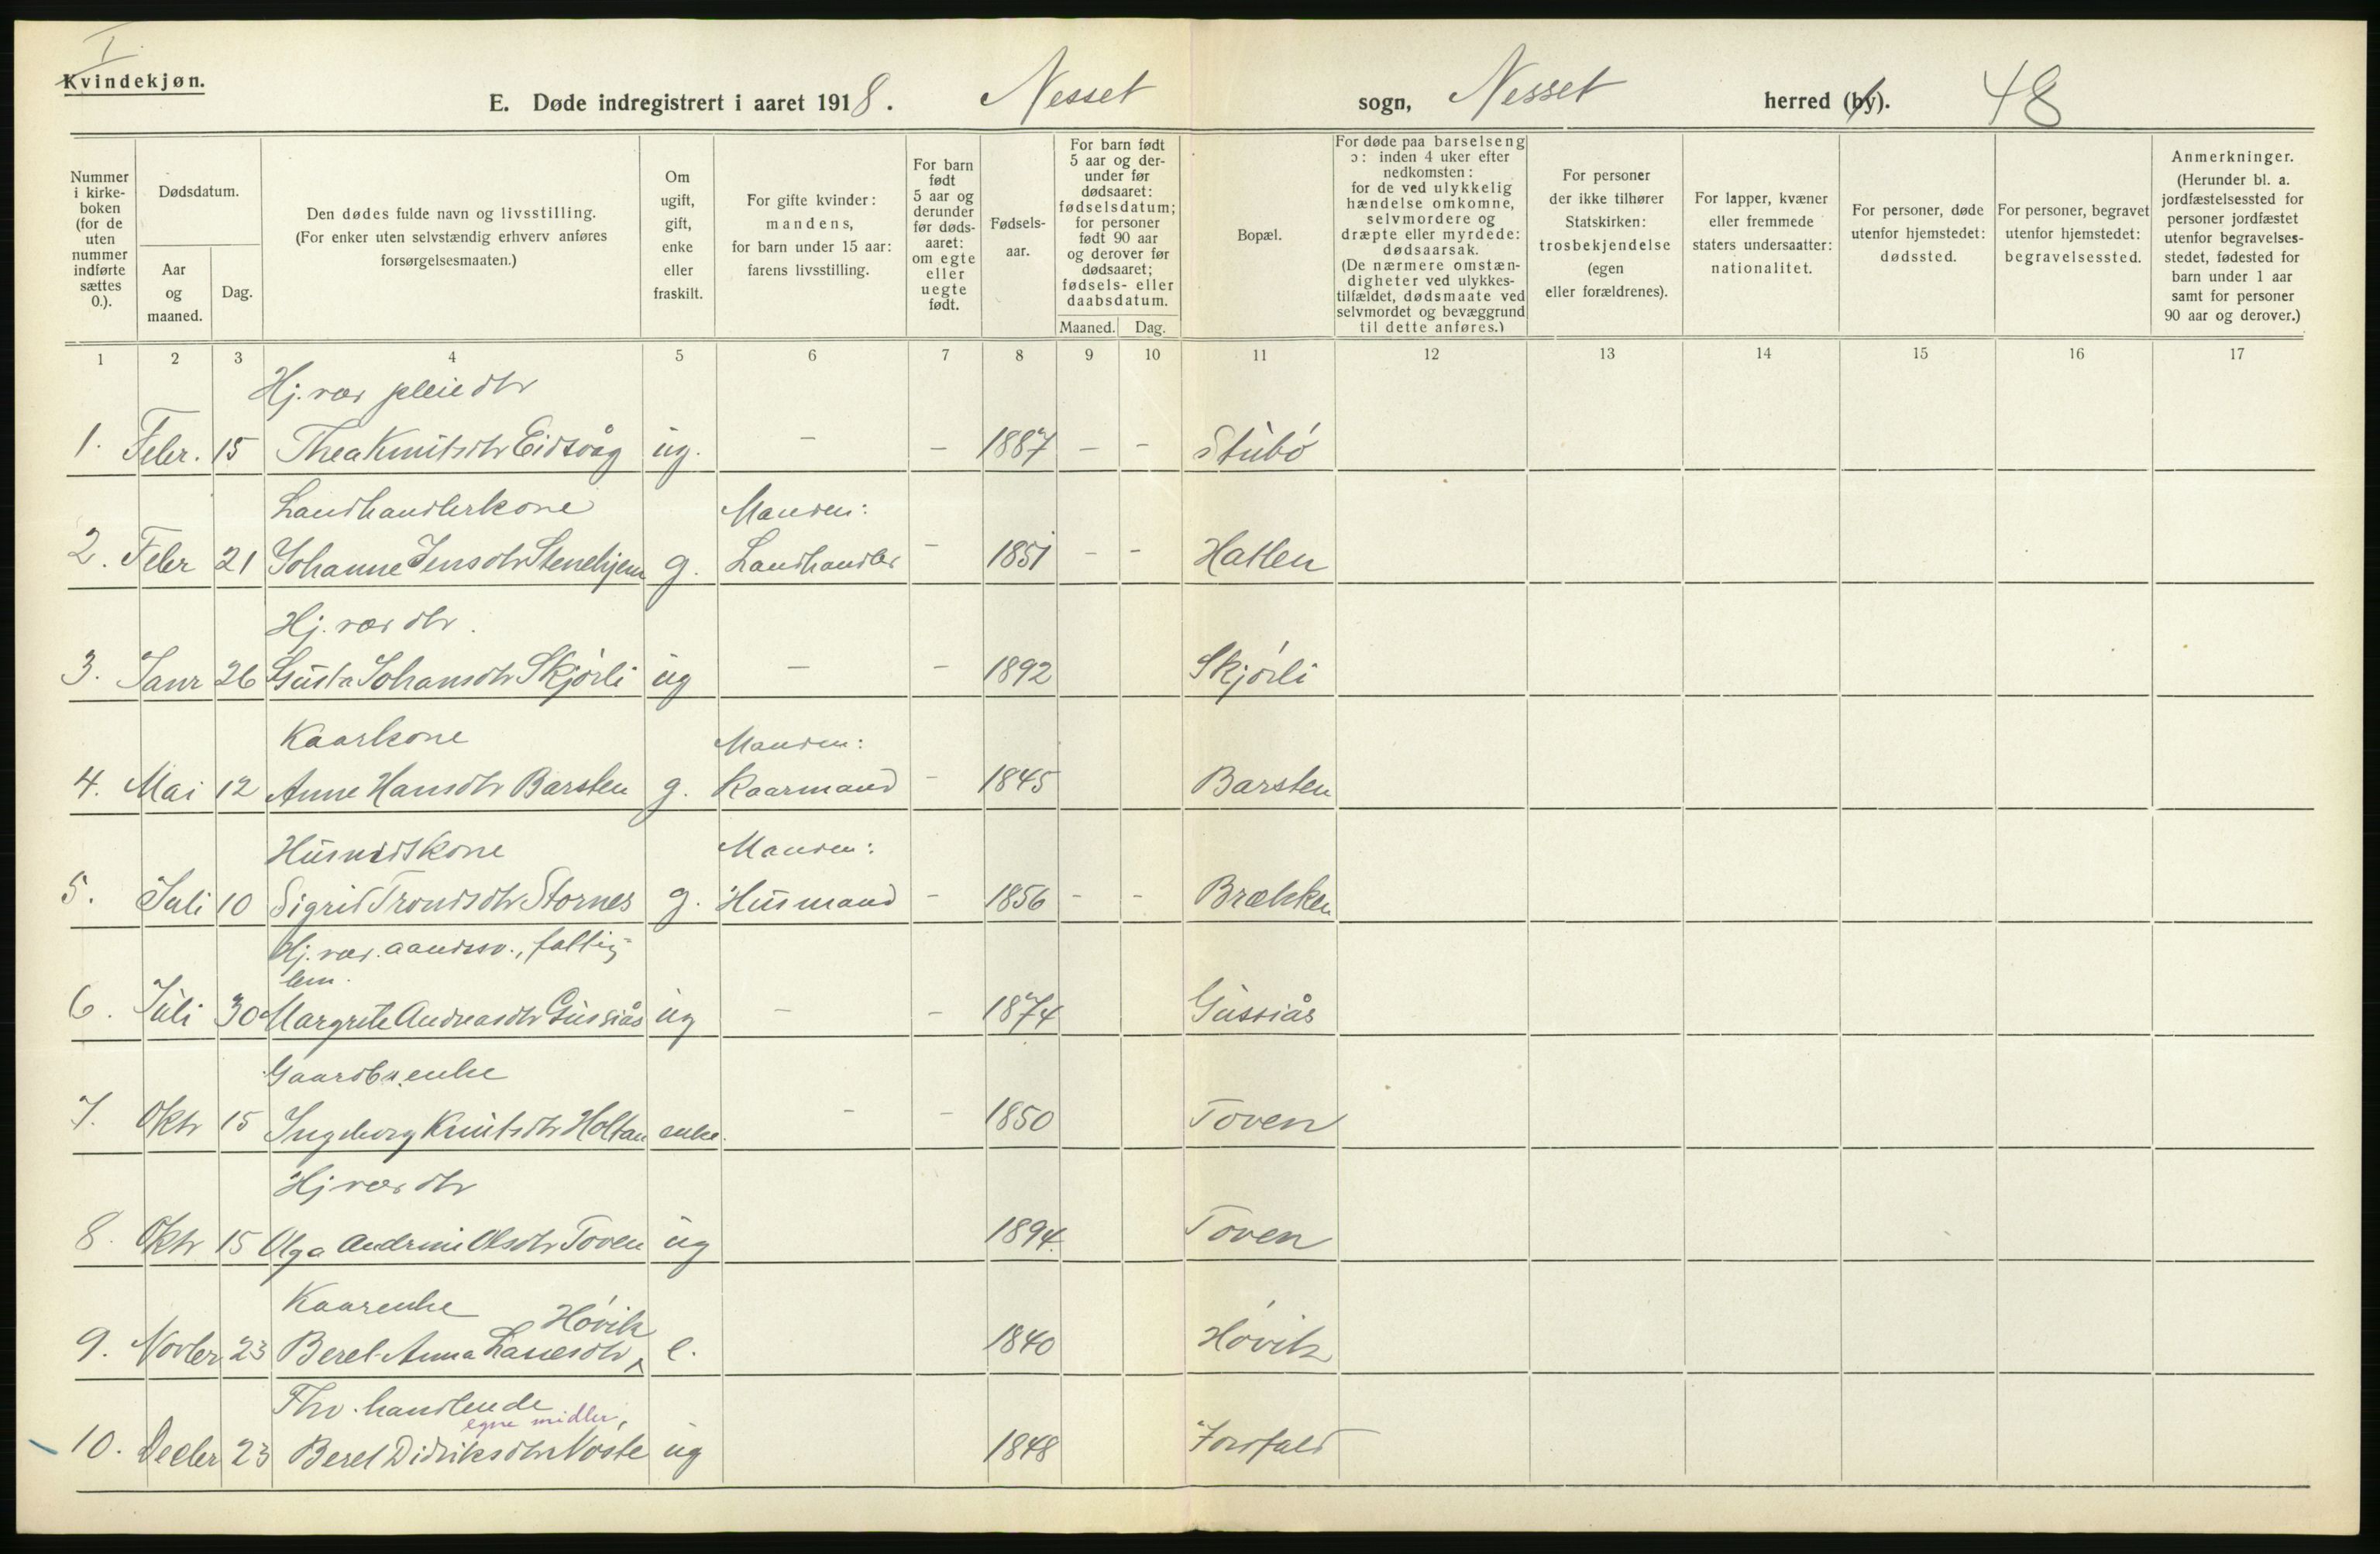 I
Kvindekjøn.
E. Døde indregistrert i aaret 1918. Nesset sogn, Nesset herred (by). 48
Nummer i kirkeboken (for de uten nummer indførte sættes 0.).
Dødsdatum.
Aar og maaned.
Dag.
Den dødes fulde navn og livsstilling.
(For enker uten selvstændig erhverv anføres forsørgelsesmaaten.)
Om ugift, gift, enke eller fraskilt.
For gifte kvinder: mandens, for barn under 15 aar: farens livsstilling.
For barn født 5 aar og derunder før dødsaaret: om egte eller uegte født.
Fødselsaar.
For barn født 5 aar og derunder før dødsaaret: fødselsdatum; for personer født 90 aar og derover før dødsaaret; fødsels- eller daabsdatum.
Maaned. Dag.
Bopæl.
For døde paa barselseng ɔ: inden 4 uker efter nedkomsten: for de ved ulykkelig hændelse omkomne, selvmordere og dræpte eller myrdede: dødsaarsak. (De nærmere omstændigheter ved ulykkestilfældet, dødsmaate ved selvmordet og bevæggrund til dette anføres.)
For personer der ikke tilhører Statskirken: trosbekjendelse (egen eller forældrenes).
For lapper, kvæner eller fremmede staters undersaatter: nationalitet.
For personer, døde utenfor hjemstedet: dødssted.
For personer, begravet utenfor hjemstedet: begravelsessted.
Anmerkninger. (Herunder bl. a. jordfæstelsessted for personer jordfæstet utenfor begravelsesstedet, fødested for barn under 1 aar samt for personer 90 aar og derover.)
1 2 3 4 5 6 7 8 9 10 11 12 13 14 15 16 17
Hj. vær pleiedtr
1. Febr. 15 Thea Knutsdtr Eidsvåg ug. – – 1887 – – Stubø
Landhandlerkone Manden:
2. Febr 21 Johanne Jensdtr Stenehjem g. Landhandler – 1851 – – Hatlen
Hj. vær dtr.
3. Janr 26 Gusta Johansdtr Skjørli ug – – 1892 Skjørli
Kaarkone Manden:
4. Mai 12 Anne Hansdtr Barsten g. Kaarmand – 1845 Barsten
Husmdskone Manden:
5. Juli 10 Sigrid Trondsdtr Stornes g. Husmand – 1856 – – Brækken
Hj. vær. aandssv., fattig-
lem.
6. Juli 30 Margrete Andreasdtr Gussiås ug – – 1874 Gussiås
Gaardbr.enke
7. Oktr 15 Ingeborg Knutsdtr Holtan enke. – – 1850 Toven
Hj vær dtr
8. Oktr 15 Olga Andrine Olsdtr Toven ug 1894. Toven
Kaarenke Høvik
9. Novbr 23 Beret-Anna Lassesdtr e. 1840 Høvik
Fhv. handlende
egne midler,
10. Decbr 23 Beret Didriksdtr Nøste ug 1848 Jordfald